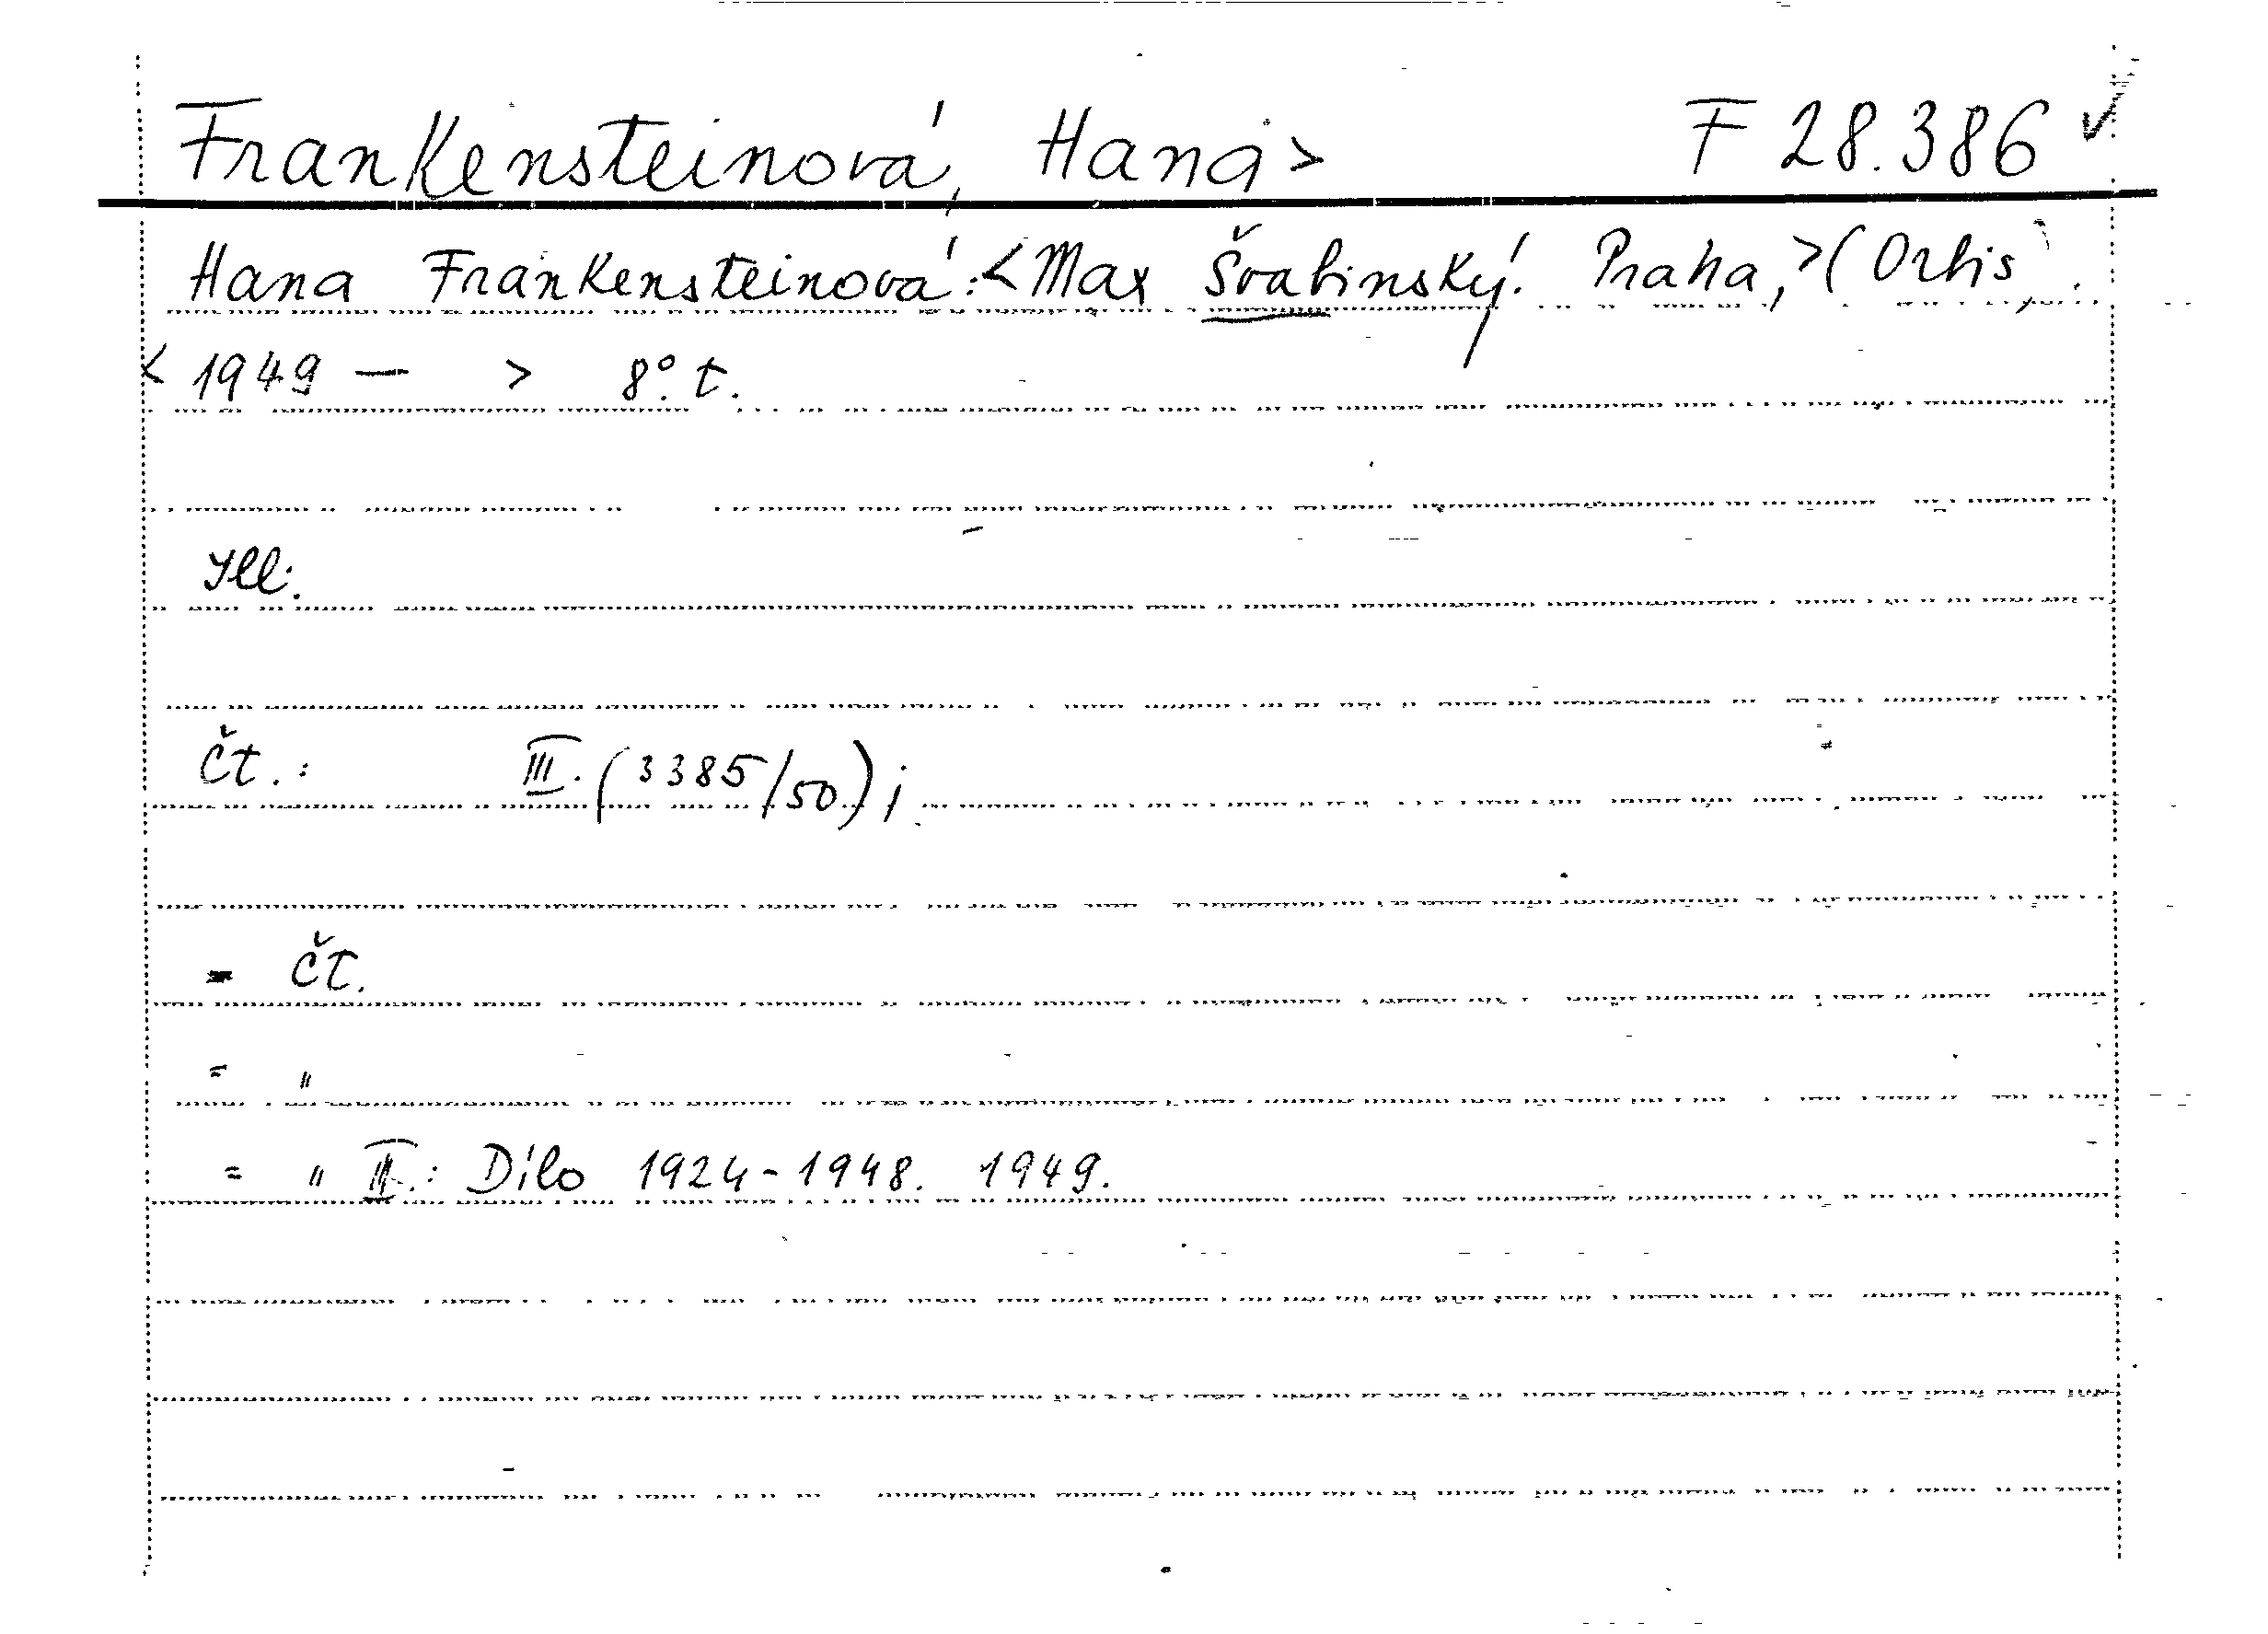 Frankensteinová, Hana> F 28.386 ✓
Hana Frankensteinová: <Max Švabinský. Praha,> (Orbis,
< 1949 — > 8°. t.
Ill.
Čt.: III. (3385/50);
= Čt.
= "
= " III.: Dílo 1924-1948. 1949.